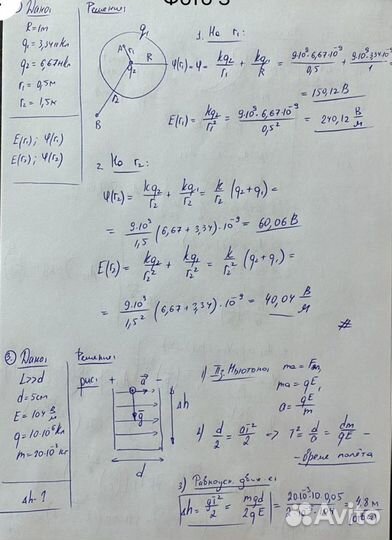 ФОТО 3
Дано:
Решение:
R = 1м
q₁ = 3,34нКл
q₂ = 6,67нКл
r₁ = 0,5м
r₂ = 1,5м
E(r₁); φ(r₁)
E(r₂); φ(r₂)
q₁
A r₁ R
q₂
r₂
B
1. На r₁:
φ(r₁) = φ = kq₂/r₁ + kq₁/R = 9·10⁹·6,67·10⁻⁹/0,5 + 9·10⁹·3,34·10⁻⁹/1
= 150,12 В
E(r₁) = kq₂/r₁² = 9·10⁹·6,67·10⁻⁹/0,5² = 240,12 В/м
2. На r₂:
φ(r₂) = kq₂/r₂ + kq₁/r₂ = k/r₂ (q₂+q₁) =
= 9·10⁹/1,5 (6,67 + 3,34)·10⁻⁹ = 60,06 В
E(r₂) = kq₂/r₂² + kq₁/r₂² = k/r₂² (q₂+q₁) =
= 9·10⁹/1,5² (6,67 + 3,34)·10⁻⁹ = 40,04 В/м
#
2) Дано:
Решение:
L>>d
d = 5см
E = 104 В/м
q = 10·10⁻⁶ Кл
m = 20·10⁻³ кг
Δh - ?
рис: + a⃗ -
g⃗
Δh
d
1) II з. Ньютона: ma = Fэл
ma = qE
a = qE/m
2) d/2 = aT²/2 => T² = d/a = dm/qE -
- время полёта
3) Равноуск. движ. с
Δh = gT²/2 = mgd/2qE = 20·10⁻³·10·0,05
= 4,8 м
Avito